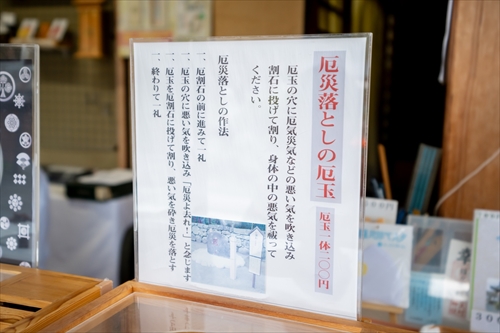 厄災落としの厄玉
厄玉一体一〇〇円
厄玉の穴に厄気災気などの悪い気を吹き込み
割石に投げて割り、身体の中の悪気を祓って
ください。
厄災落としの作法
一、厄割石の前に進みて一礼
一、厄玉の穴に悪い気を吹き込み「厄災よ去れ！」と念じます
一、厄玉を厄割石に投げて割り、悪い気を砕き厄災を落とす
一、終わりて一礼
300